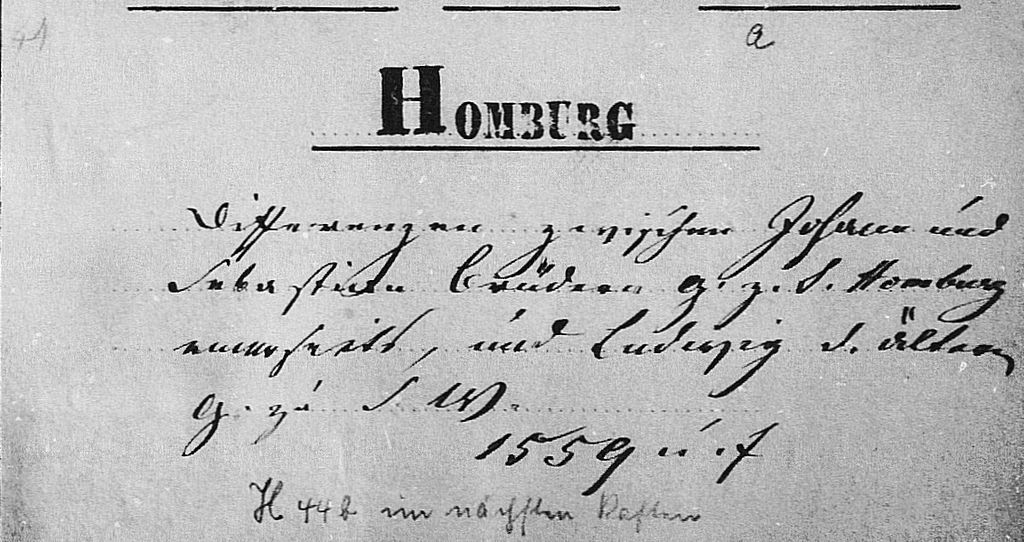 44
a
HOMBURG
Differenzen zwischen Johann und
Sebastian Brüdern G. z. S. Homburg
einerseits, und Ludwig d. ältern
G. zu S W.
1559 u. f
H 44b im nächsten Kasten